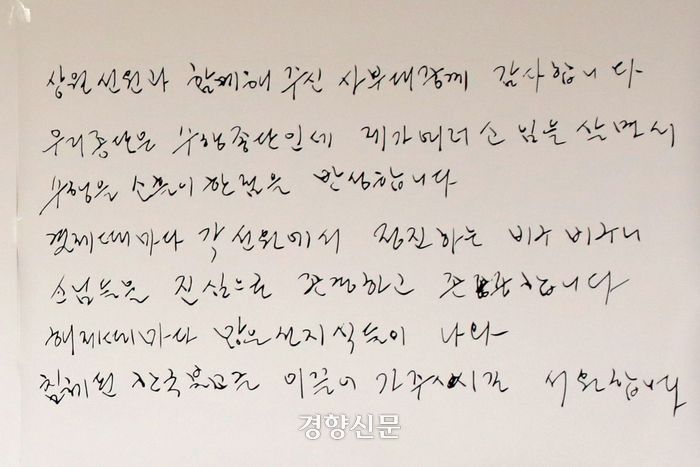 상월선원과 함께해 주신 사부대중께 감사합니다
우리종단은 수행종단인데 제가 여러 소임을 살면서
수행을 소홀히 한 점을 반성합니다
결제때마다 각 선원에서 정진하는 비구 비구니
스님들을 진심으로 존경하고 존중합니다
해제때마다 많은 선지식들이 나와
침체된 한국불교를 이끌어 가주시길 서원합니다
경향신문